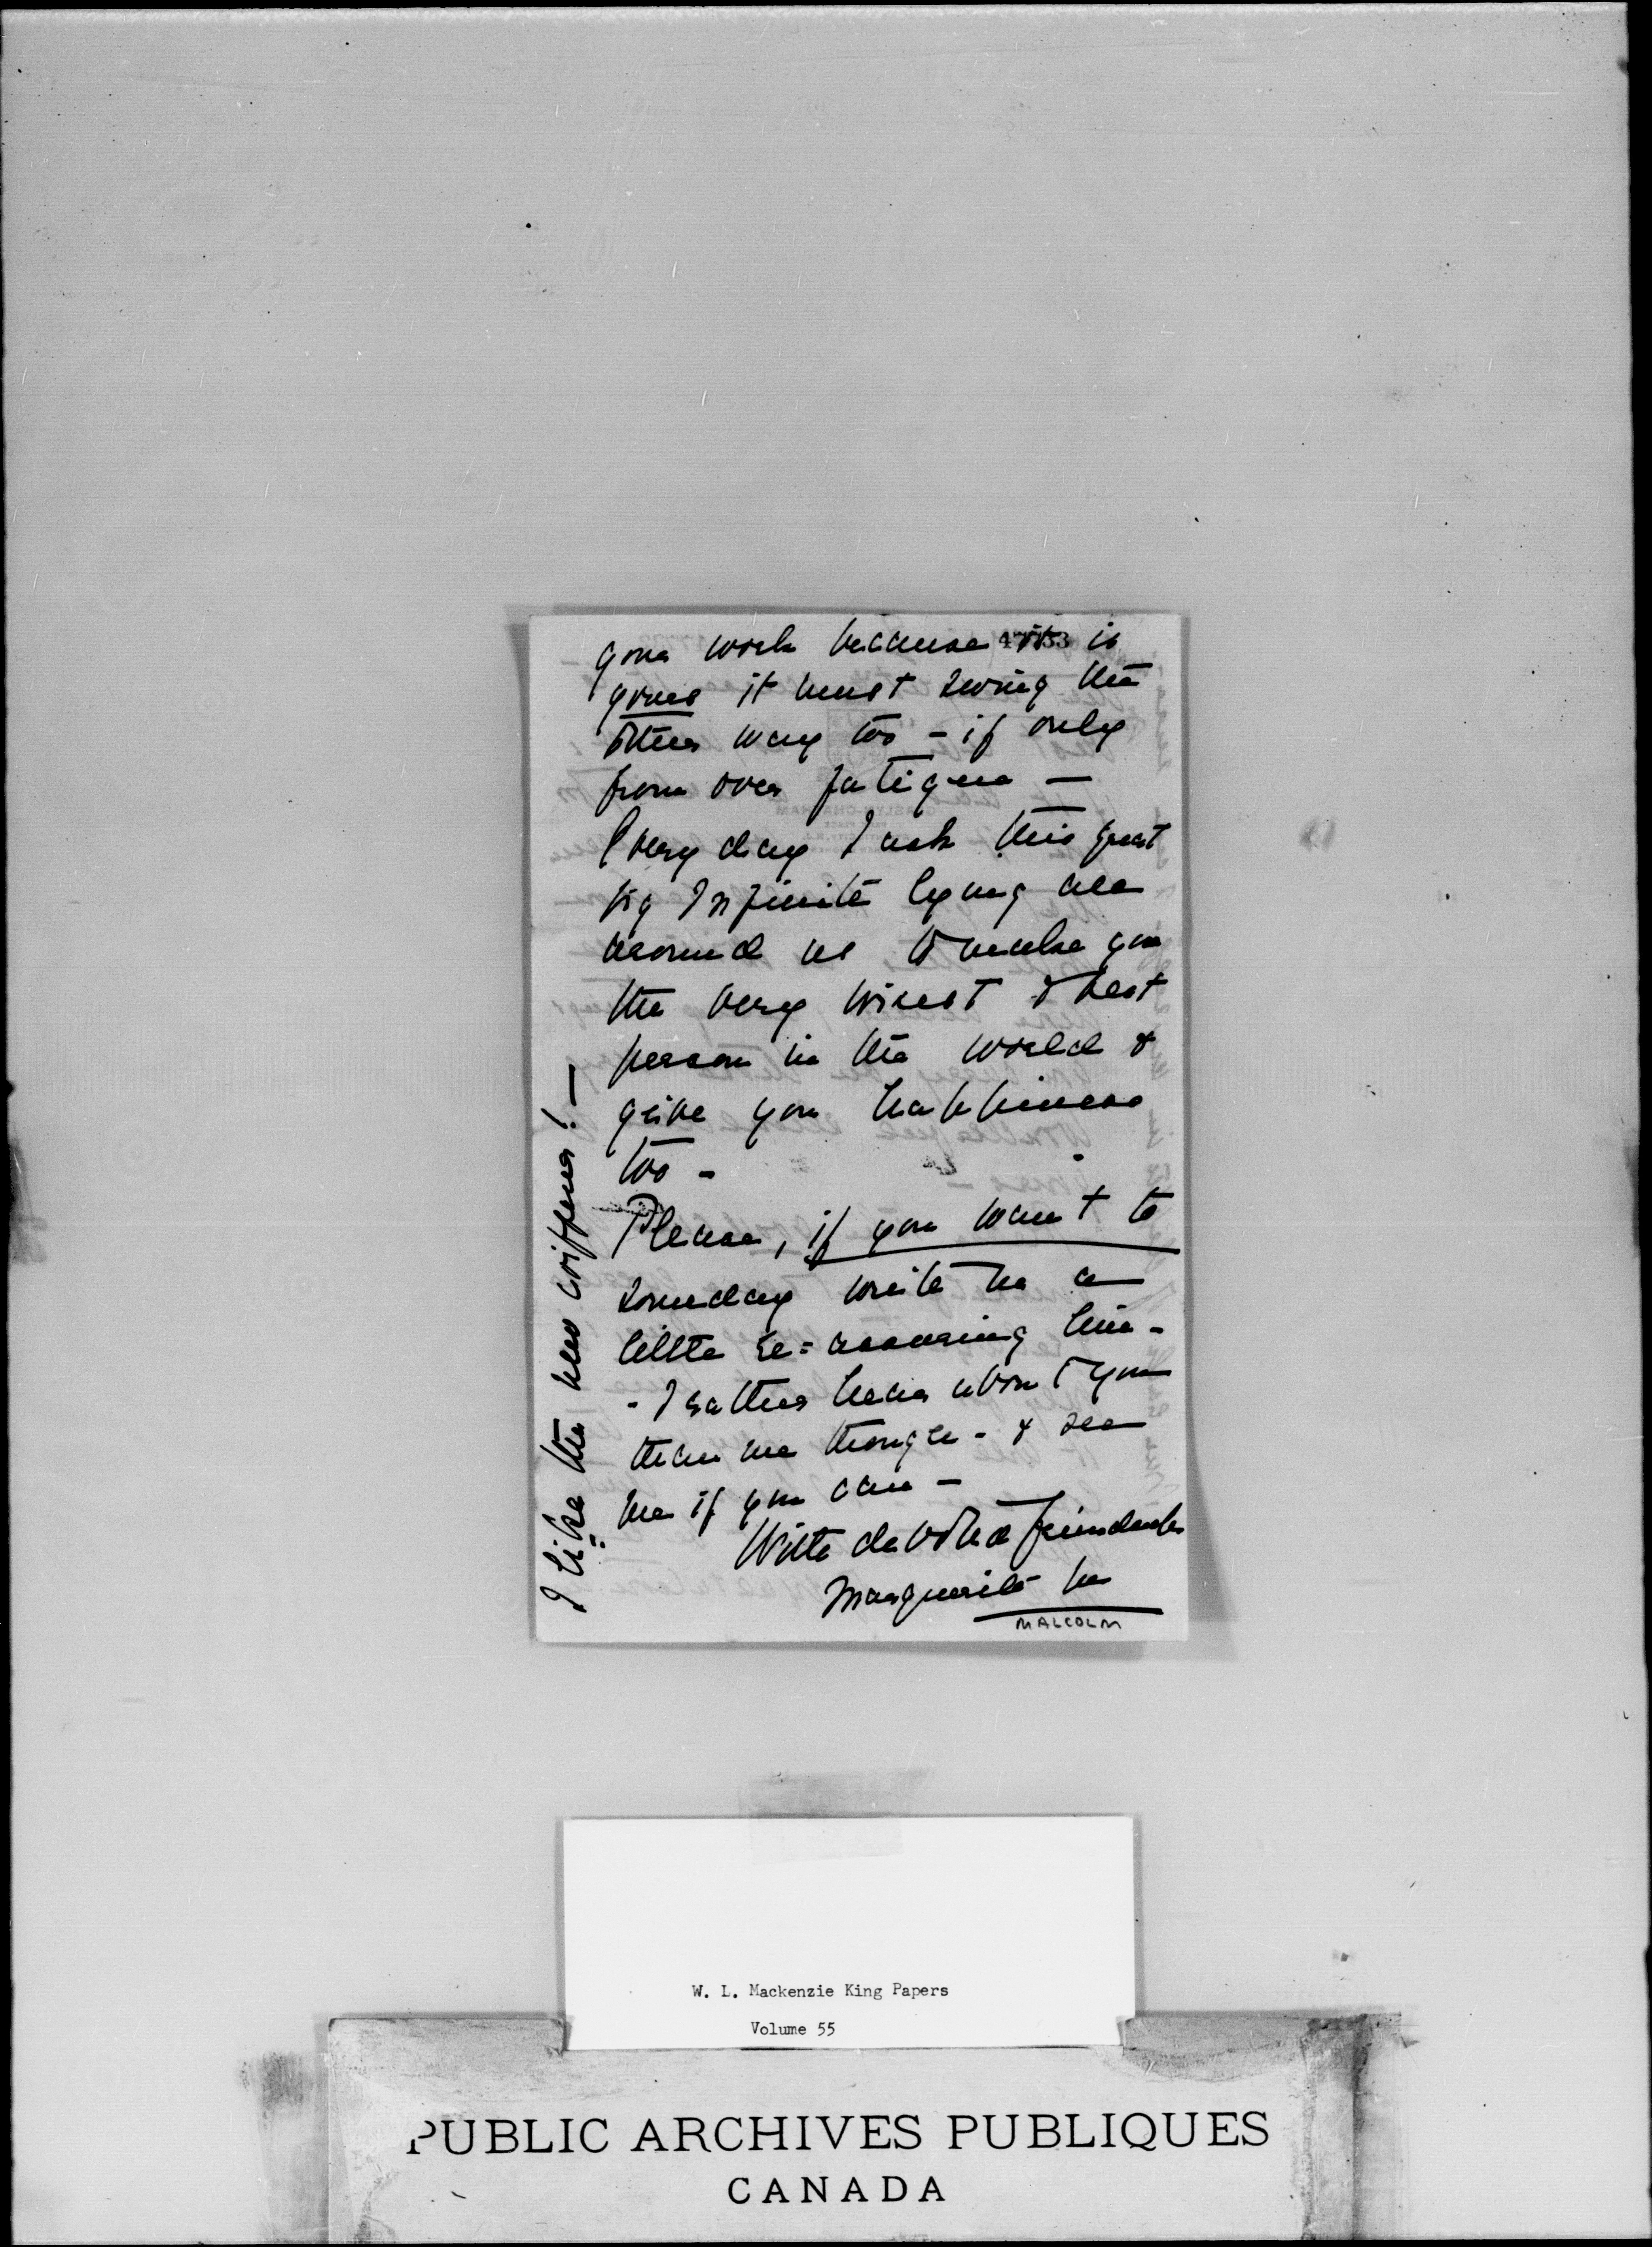 your work because it is
yours it must swing the
other way too - if only
from over fatigue —
Every day I ask this great
big Infinite lying all
around us to make you
the very wisest & best
person in the world &
give you happiness
too -
Please, if you want to
someday write me a
little re=assuring line -
- I rather hear about you
than me though - & see
me if you can -
With devoted friendship
Marguerite M
MALCOLM
I like the new
W. L. Mackenzie King Papers
Volume 55
PUBLIC ARCHIVES PUBLIQUES
CANADA